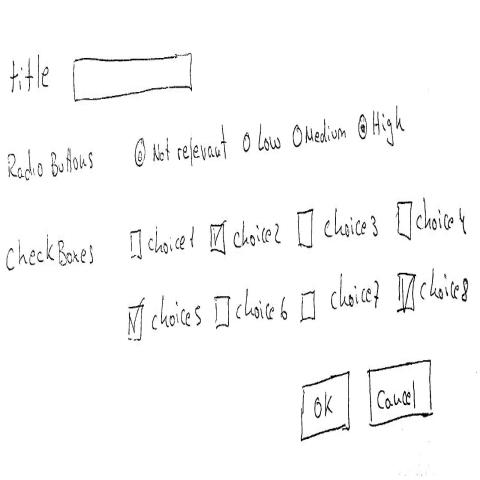 title
Radio Buttons Not relevant Low Medium High
CheckBoxes choice1 choice2 choice3 choice4
choice5 choice6 choice7 choice8
OK Cancel